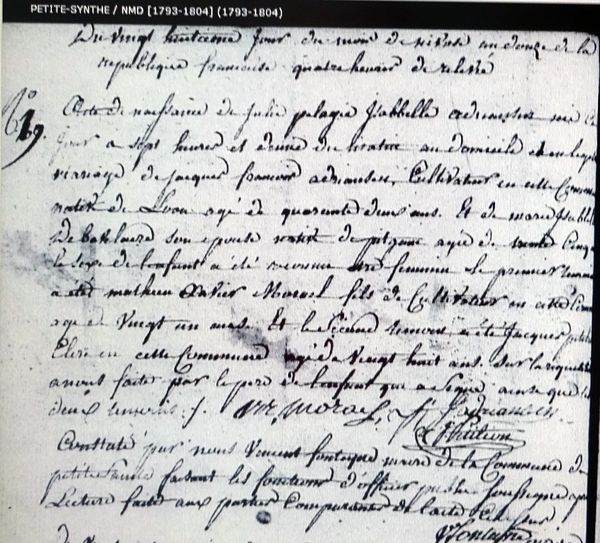 PETITE-SYNTHE / NMD [1793-1804] (1793-1804)
Du vingt huitieme jour du mois de nivose an douze de la
republique francoise quatre heures de relevée
N° 19.
Acte de naissance de julie pelagie Isabelle adriansen née ce
jour a sept heures et demie du matin au domicile et en legitime
mariage de jacques francois adriansen, Cultivateur en cette Commune
natif de Loon agé de quarante deux ans. Et de marie Isabelle
son epouse native de agée de trente cinq
le sexe de lenfant a été reconnu feminin Le premier temoin
a été mathieu Xavier Morael fils de Cultivateur en cette Commune
agé de Vingt un ans. Et le Second temoin a été Jacques
en cette Commune agé de Vingt huit ans. Sur la requisition
a nous faite par le pere de lenfant qui a signé ainsi que les
deux temoins ./. Morael J f adriansen
Constaté par nous Vincent fontaine maire de la Commune de
petite Synthe faisant les fonctions d'officier public Soussigné après
Lecture faite aux parties Comparantes de lacte
V fontaine